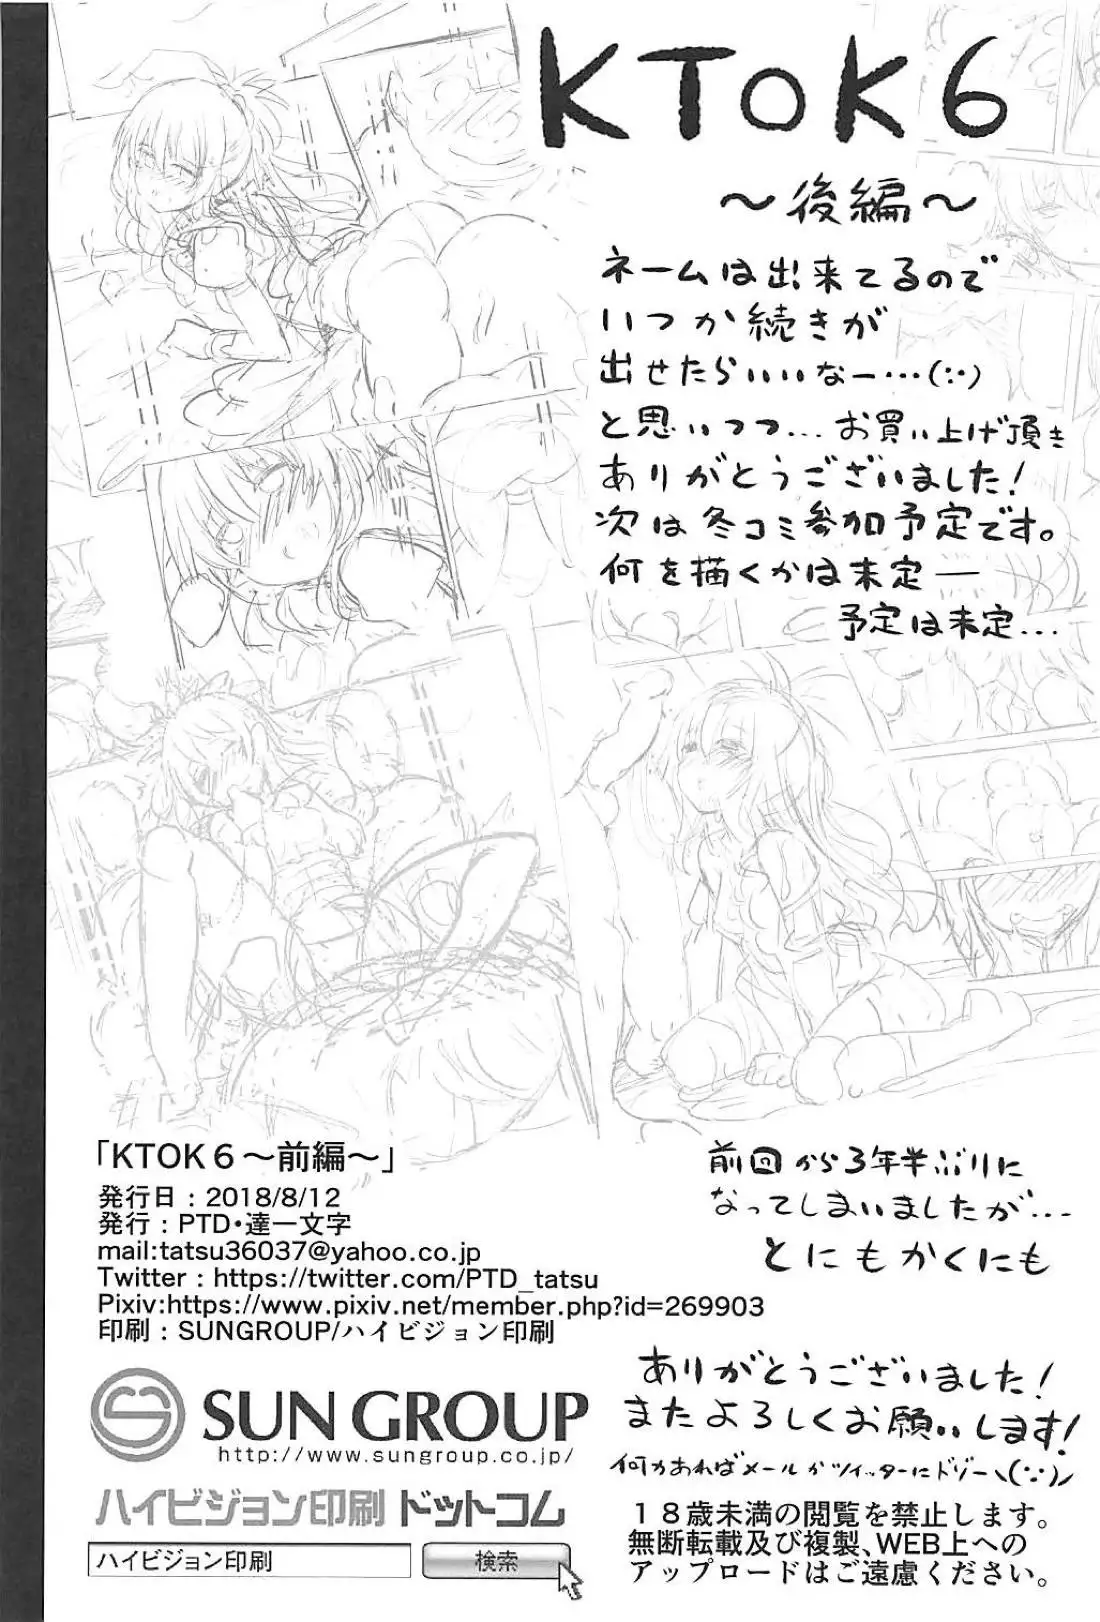 KTOK6
～後編～
ネームは出来てるので
いつか続きが
出せたらいいなー…(:･)
と思いつつ…お買い上げ頂き
ありがとうございました!
次は冬コミ参加予定です。
何を描くかは未定―
予定は未定…
「KTOK６～前編～」
発行日：2018/8/12
発行：PTD･達一文字
mail:tatsu36037@yahoo.co.jp
Twitter：https://twitter.com/PTD_tatsu
Pixiv:https://www.pixiv.net/member.php?id=269903
印刷：SUNGROUP/ハイビジョン印刷
SUN GROUP
http://www.sungroup.co.jp/
ハイビジョン印刷 ドットコム
ハイビジョン印刷 検索
前回から3年半ぶりに
なってしまいましたが…
とにもかくにも
ありがとうございました!
またよろしくお願いします!
何かあればメールかツイッターにドゾー＼(:･)ノ
１８歳未満の閲覧を禁止します。
無断転載及び複製、WEB上への
アップロードはご遠慮ください。